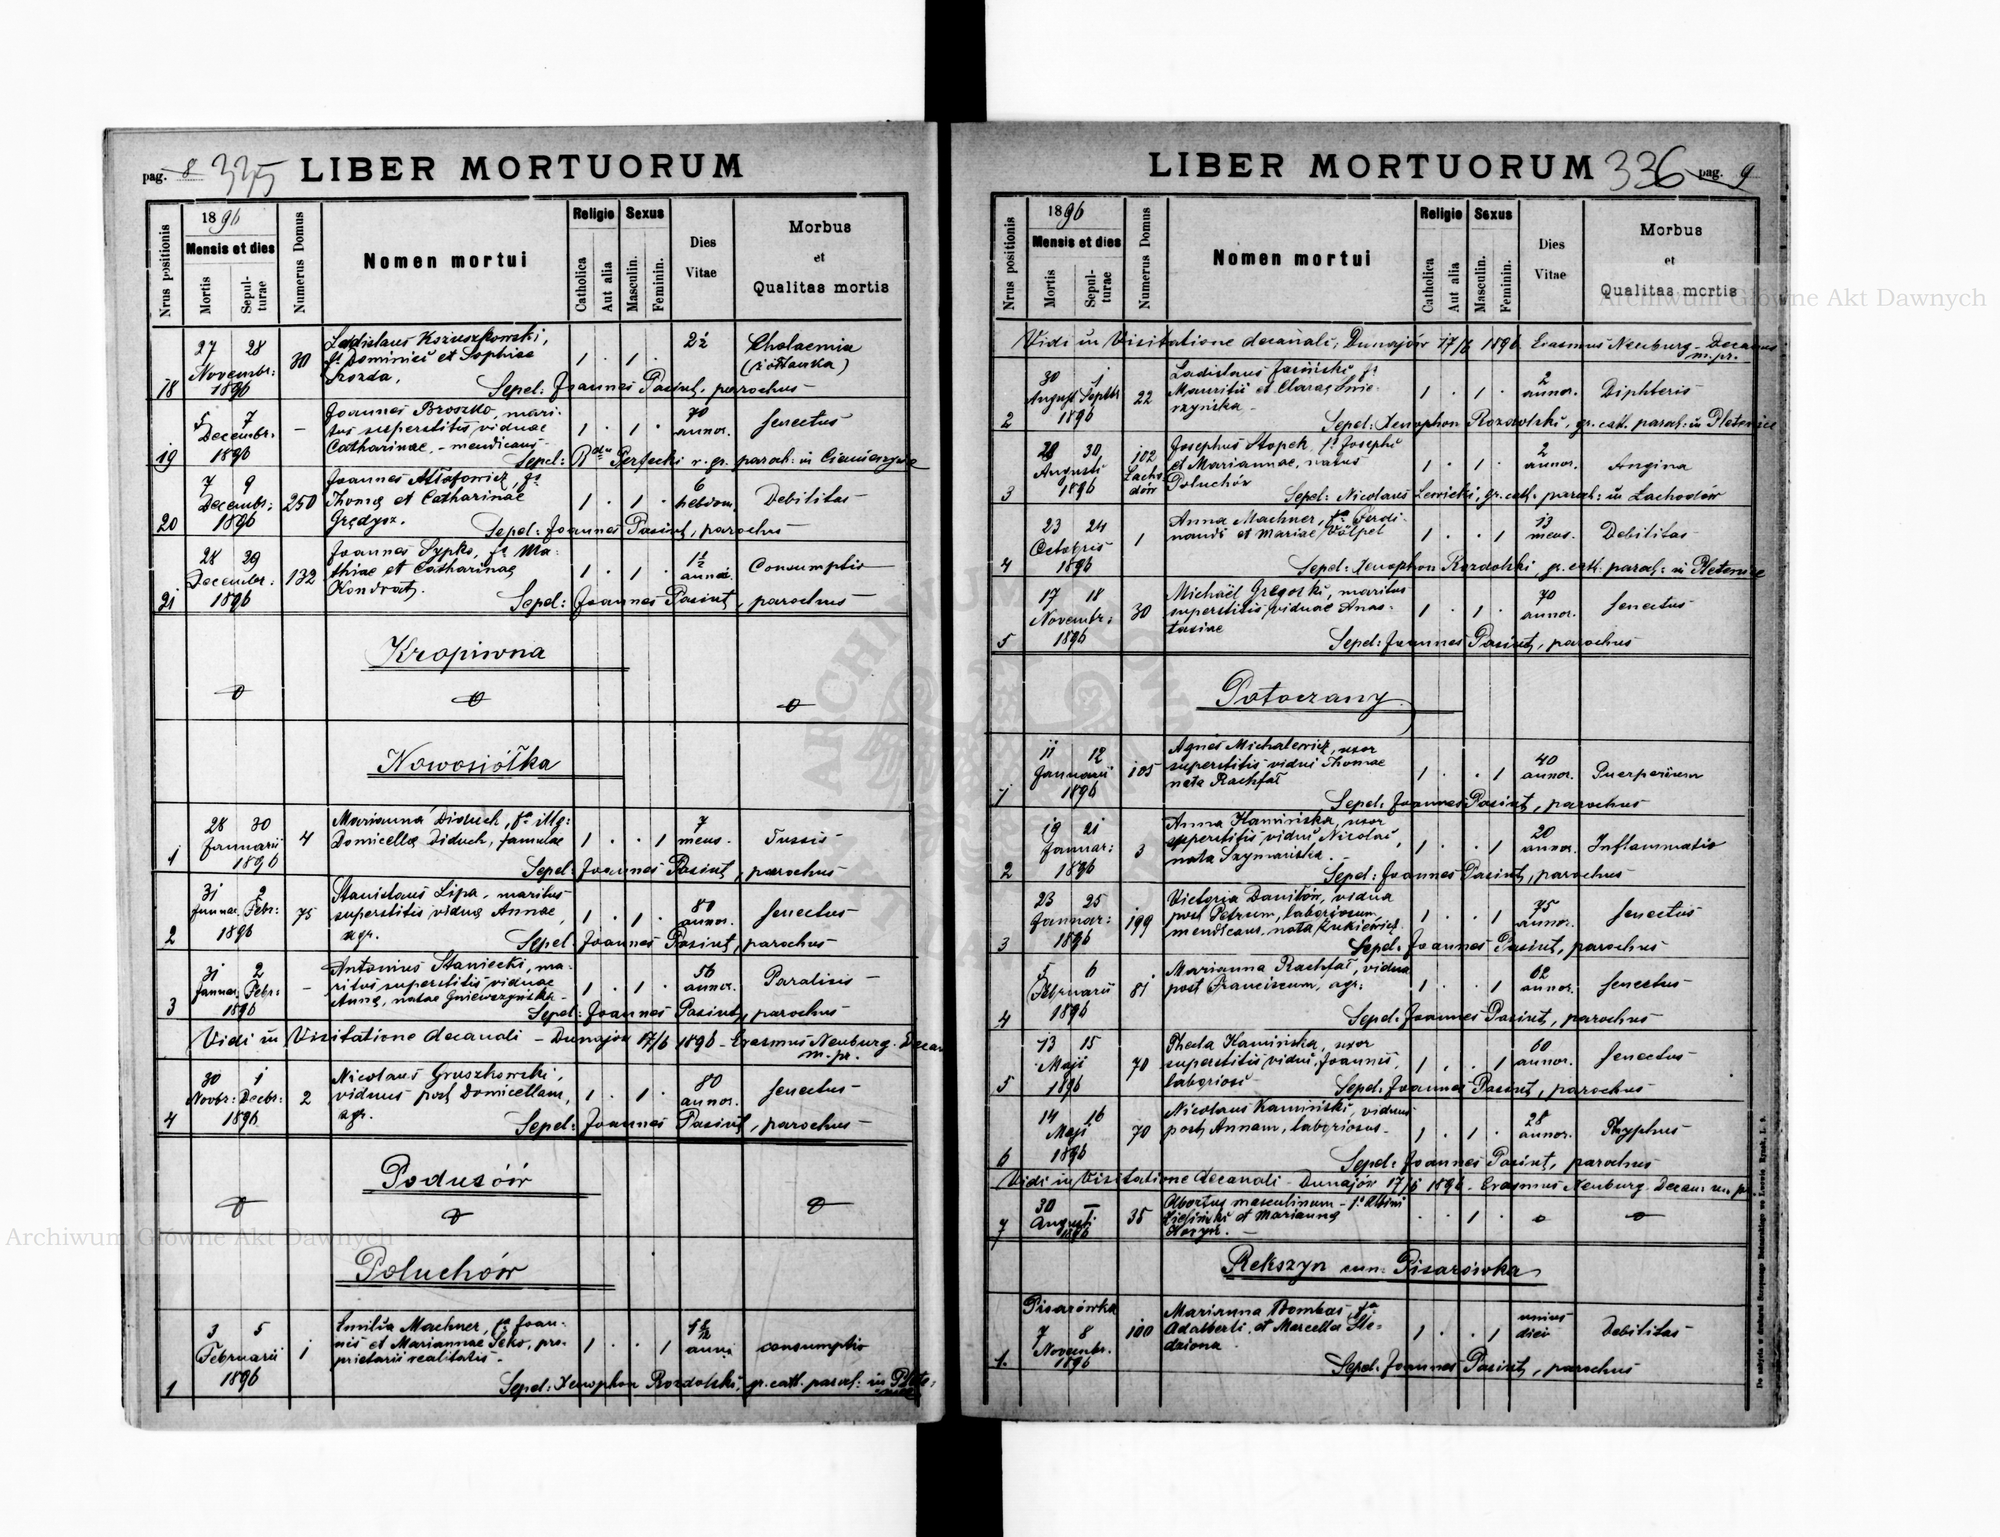 pag. 8 335 LIBER MORTUORUM
Nrus positionis
1896
Mensis et dies
Mortis
Sepul-
turae
Numerus Domus
Nomen mortui
Religio
Catholica
Aut alia
Sexus
Masculin.
Feminin.
Dies
Vitae
Morbus
et
Qualitas mortis
18
27 28
Novembr:
1896
30
Ladislaus Kożuszkowski,
fs Dominici et Sophiae
1 . 1 .
2½
Cholaemia
(żółtaczka)
Sepel: Joannes Pasiut, parochus
19
5 7
Decembr.
1896
–
Joannes Broszko, mari-
tus superstitis viduae
Catharinae, - mendicans
1 . 1 .
70
annor.
Senectus
Sepel: gr. paroch: in
20
7 9
Decembr:
1896
250
Joannes
Thomę et Catharinae
1 . 1 .
6
hebdom.
Debilitas
Sepel: Joannes Pasiut, parochus
21
28 30
Decembr:
1896
132
Joannes Sypko, fs Ma-
thiae et Catharinae
Kondrat.
1 . 1 .
1½
Consumptio
Sepel: Joannes Pasiut, parochus
Kropiwna
Nowosiółka
1
28 30
Januarii
1896
4
Marianna Diduch, fa illg:
Domicellę Diduch, famulae
1 . . 1
7
mens.
Tussis
Sepel: Joannes Pasiut, parochus
2
31 2
Januar. Febr:
1896
75
Stanislaus Lipa, maritus
superstitis viduę Annae,
agr.
1 . 1 .
80
annor.
Senectus
Sepel: Joannes Pasiut, parochus
3
31 2
Januar. Febr:
1896
–
Antonius Staniecki, ma-
ritus superstitis viduae
Annę, natae Gniewczyńska
1 . 1 .
56
annor.
Paralisis
Sepel: Joannes Pasiut, parochus
Vidi in Visitatione decanali – Dunajów 17/6 1896 – Erasmus Neuburg. Decan
m. pr.
4
30 1
Novbr: Decbr:
1896
2
Nicolaus Gruszkowski,
viduus post Domicellam,
agr.
1 . 1 .
80
annor.
Senectus
Sepel: Joannes Pasiut, parochus
Podusów
Poluchów
1
3 5
Februarii
1896
1
Emilia Machner, fa Joan-
nis et Mariannae Seko, pro-
prietarii realitatis
1 . . 1
consumptio
Sepel: Xenophon Rozdolski, gr. cath. paroch: in Plete-
nice
LIBER MORTUORUM 336 pag. 9
Nrus positionis
1896
Mensis et dies
Mortis
Sepul-
turae
Numerus Domus
Nomen mortui
Religio
Catholica
Aut alia
Sexus
Masculin.
Feminin.
Dies
Vitae
Morbus
et
Qualitas mortis
Vidi in Visitatione decanali, Dunajów 17/6 1896. Erasmus Neuburg – Decanus
m. pr.
2
30 1
August Septbr
1896
22
Ladislaus Jasiński fs
Mauritii et Clarae Śnie-
rzyńska
1 . 1 .
2
annor.
Diphteris
Sepel: Xenophon Rozdolski, gr. cath. paroch: in Pletenice
3
28 30
Augusti
1896
102
Lacho-
dów
Josephus Stopek, fs Josephi
et Mariannae, natus
Poluchów
1 . 1 .
2
annor.
Angina
Sepel: Nicolaus Lewicki, gr. cath. paroch: in Lachodów
4
23 24
Octobris
1896
1
Anna Machner, fa Ferdi-
nandi et Mariae Völpel
1 . . 1
13
mens.
Debilitas
Sepel: Xenophon Rozdolski, gr. cath: paroch: in Pletenice
5
17 18
Novembr:
1896
30
Michaël Gregorki, maritus
superstitis viduae Anas-
tasiae
1 . 1 .
70
annor.
Senectus
Sepel: Joannes Pasiut, parochus
Potoczany
1
11 12
Januarii
1896
105
Agnes Michalewicz, uxor
superstitis vidui Thomae
nata Rachfał
1 . . 1
40
annor.
Puerperium
Sepel: Joannes Pasiut, parochus
2
19 21
Januar:
1896
3
Anna Kamińska, uxor
superstitis vidui Nicolai,
nata Szymańska.
1 . . 1
20
annor.
Inflammatio
Sepel: Joannes Pasiut, parochus
3
23 25
Januar:
1896
199
Victoria Daniłów, vidua
post Petrum, laboriosum,
mendicans, nata Żukiewicz
1 . . 1
75
annor.
Senectus
Sepel: Joannes Pasiut, parochus
4
5 6
Februarii
1896
81
Marianna Rachfał, vidua
post Franciscum, agr:
1 . . 1
62
annor.
Senectus
Sepel: Joannes Pasiut, parochus
5
13 15
Maji
1896
70
Thecla Kamińska, uxor
superstitis vidui Joannis,
laboriosi
1 . . 1
60
annor.
Senectus
Sepel: Joannes Pasiut, parochus
6
14 16
Maji
1896
70
Nicolaus Kamiński, viduus
post Annam, laboriosus
1 . 1 .
28
annor.
Thyphus
Sepel: Joannes Pasiut, parochus
Vidi in Visitatione decanali – Dunajów 17/6 1896 – Erasmus Neuburg. Decan: m. pr
7
30 –
Augusti
1896
35
Abortus masculinum – fs Albini
Zieliński et Mariannę
. . 1 .
Rekszyn cum Pisarówka
Pisarówka
1.
7 8
Novembr.
1896
100
Marianna Bombas, fa
Adalberti, et Marcella Śle-
dziona
1 . . 1
unius
diei
Debilitas
Sepel: Joannes Pasiut, parochus
Archiwum Główne Akt Dawnych
Archiwum Główne Akt Dawnych